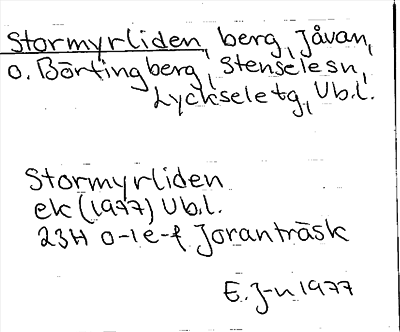 Stormyrliden, berg, Jåvan,
o. Börtingberg, Stensele sn,
Lycksele tg, Vb.l.
Stormyrliden
ek (1977) Vb.l.
23H 0-1 e-f Joranträsk
E. J-n 1977